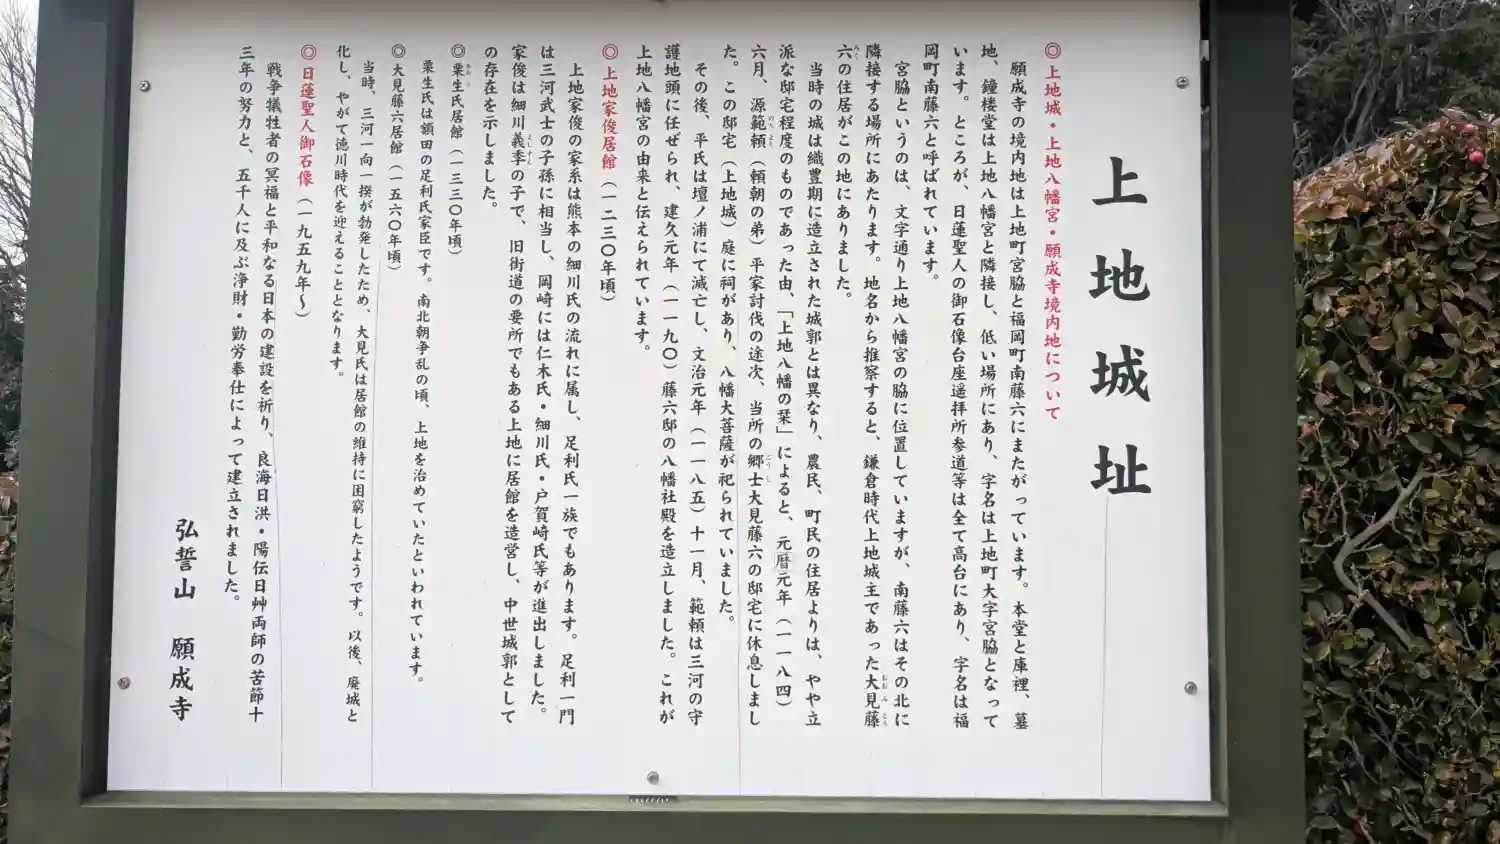 上地城址
◎上地城・上地八幡宮・願成寺境内地について
願成寺の境内地は上地町宮脇と福岡町南藤六にまたがっています。本堂と庫裡、墓
地、鐘楼堂は上地八幡宮と隣接し、低い場所にあり、字名は上地町大字宮脇となって
います。ところが、日蓮聖人の御石像台座遥拝所参道等は全て高台にあり、字名は福
岡町南藤六と呼ばれています。
宮脇というのは、文字通り上地八幡宮の脇に位置していますが、南藤六はその北に
隣接する場所にあたります。地名から推察すると、鎌倉時代上地城主であった大見藤
六の住居がこの地にありました。
当時の城は織豊期に造立された城郭とは異なり、農民、町民の住居よりは、やや立
派な邸宅程度のものであった由、「上地八幡の栞」によると、元暦元年（一一八四）
六月、源範頼（頼朝の弟）平家討伐の途次、当所の郷士大見藤六の邸宅に休息しまし
た。この邸宅（上地城）庭に祠があり、八幡大菩薩が祀られていました。
その後、平氏は壇ノ浦にて滅亡し、文治元年（一一八五）十一月、範頼は三河の守
護地頭に任ぜられ、建久元年（一一九〇）藤六邸の八幡社殿を造立しました。これが
上地八幡宮の由来と伝えられています。
◎上地家俊居館（一二三〇年頃）
上地家俊の家系は熊本の細川氏の流れに属し、足利氏一族でもあります。足利一門
は三河武士の子孫に相当し、岡崎には仁木氏・細川氏・戸賀崎氏等が進出しました。
家俊は細川義季の子で、旧街道の要所でもある上地に居館を造営し、中世城郭として
の存在を示しました。
◎粟生氏居館（一三三〇年頃）
粟生氏は額田の足利氏家臣です。南北朝争乱の頃、上地を治めていたといわれています。
◎大見藤六居館（一五六〇年頃）
当時、三河一向一揆が勃発したため、大見氏は居館の維持に困窮したようです。以後、廃城と
化し、やがて徳川時代を迎えることとなります。
◎日蓮聖人御石像（一九五九年〜）
戦争犠牲者の冥福と平和なる日本の建設を祈り、良海日洪・陽伝日艸両師の苦節十
三年の努力と、五千人に及ぶ浄財・勤労奉仕によって建立されました。
弘誓山　願成寺